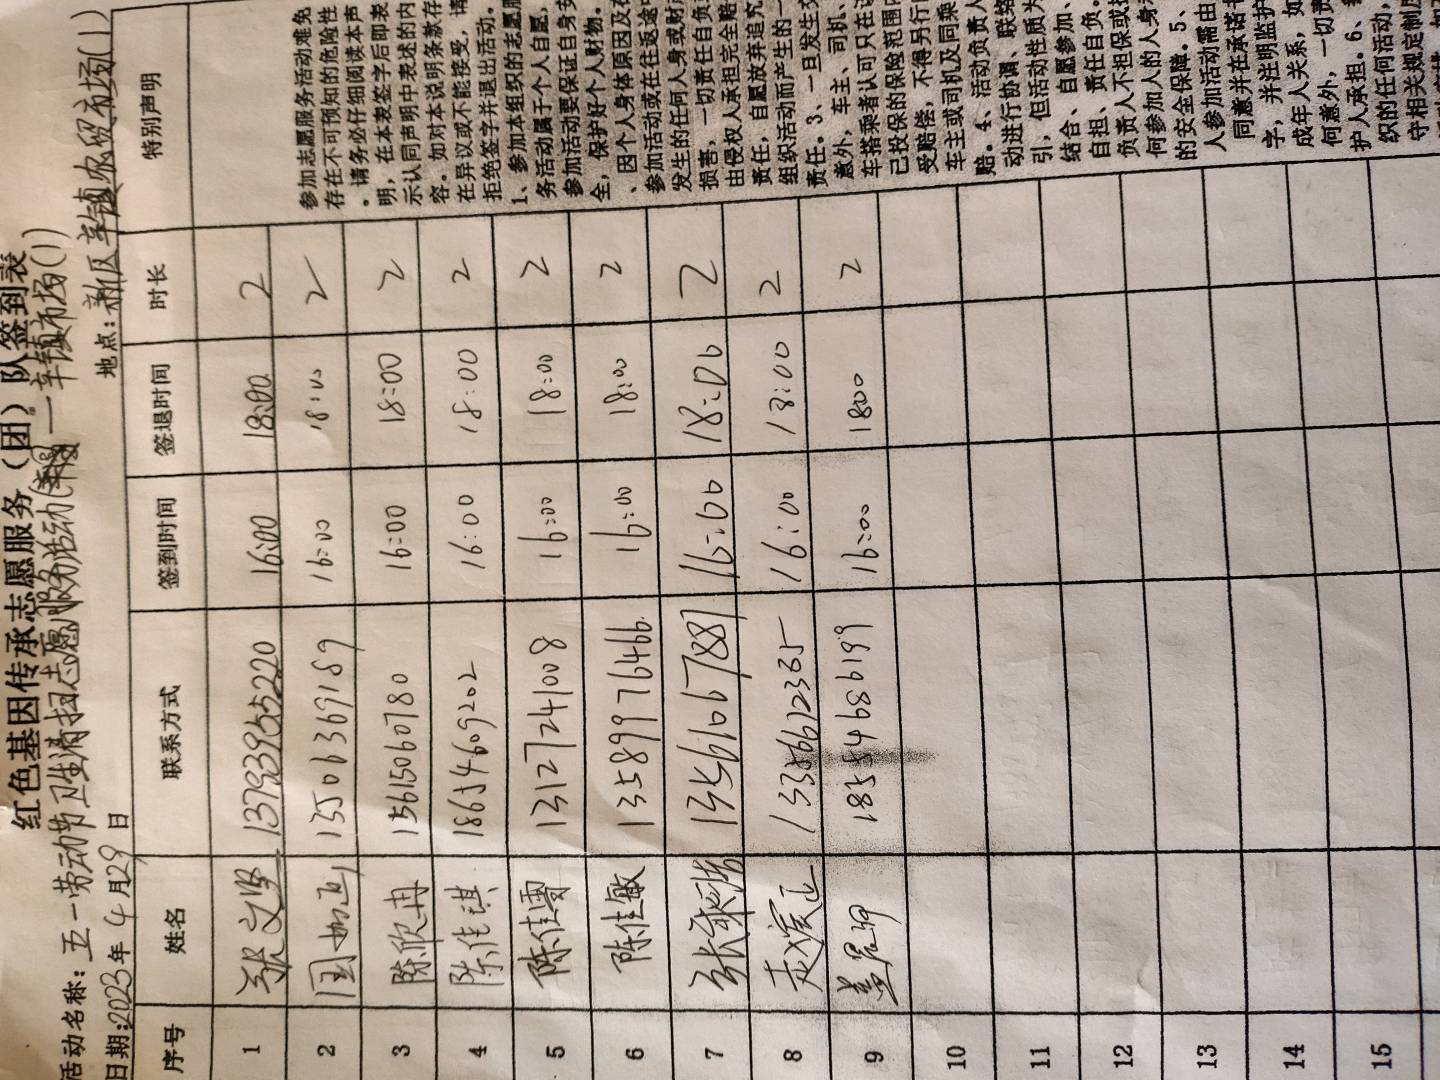 红色基因传承志愿服务（团）队签到表
活动名称：五一劳动节卫生清扫志愿服务活动 一车镇市场(1)
日期:2023年4月29日 地点:新区车镇农贸市场(1)
序号 姓名 联系方式 签到时间 签退时间 时长 特别声明
1 张文坚 13793955220 16:00 18:00 2
2 1506369189 16:00 18:00 2
3 陈欣冉 15615060780 16:00 18:00 2
4 陈佳琪 18654609202 16:00 18:00 2
5 陈佳雪 13127241008 16:00 18:00 2
6 陈佳敏 13589976466 16:00 18:00 2
7 13561667887 16:00 18:00 2
8 13356612335 16:00 18:00 2
9 18554686199 16:00 1800 2
10
11
12
13
14
15
参加志愿服务活动难免
存在不可预知的危险性
。请务必仔细阅读本声
明，在本表签字后即表
示认同声明中表述的内
容。如对本说明条款存
在异议或不能接受，请
拒绝签字并退出活动。
1、参加本组织的志愿服
务活动属于个人自愿，
参加活动要保证自身安
全，保护好个人财物。
、因个人身体原因及在
参加活动或在往返途中
发生的任何人身或财产
损害，一切责任自负
由侵权人承担完全赔
责任，自愿放弃追究
组织活动而产生的一
责任。3、一旦发生交
意外，车主、司机、
车搭乘者认可只在该
已投保的保险范围内
受赔偿，不得另行
车主或司机及同乘
赔。4、活动负责人
动进行协调、联络
引，但活动性质为
结合、自愿参加、
自担、责任自负。
负责人不担保或
何参加人的人身
的安全保障。5、
人参加活动需由
同意并在承诺书
字，并注明监护
成年人关系，如
何意外，一切责
护人承担。6、
织的任何活动，
守相关规定制度